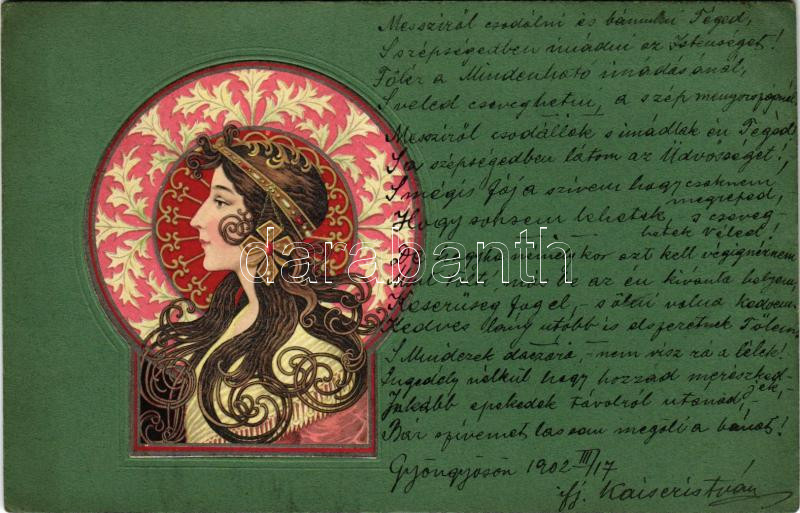 Messziről csodálni és bámulni Téged,
S szépségedben imádni az Istenséget!
Fölér a Mindenható imádásánál,
S veled cseveghetni, a szép menyországnál.
Messziről csodállak s imádlak én Téged
S a szépségedben látom az Üdvösséget!,
S mégis fáj a szivem hogy csaknem
megreped,
Hogy sohsem lehetek, s cseveg-
hetek Véled!
De hogyha némelykor azt kell végignéznem
az én
Keserüség fogel, - s ölni volna kedvem
Kedves lány utóbb is elszeretnek Tőlem
S Mindezek daczára, - nem visz rá a lélek!
Engedély nélkül hogy hozzád merészked-
jek, -
Inkább epekedek távolról utánad, -
Bár szivemet lassan megöli a bánat!
Gyöngyösön 1902 III/17
ifj. Kaiser István
darabanth